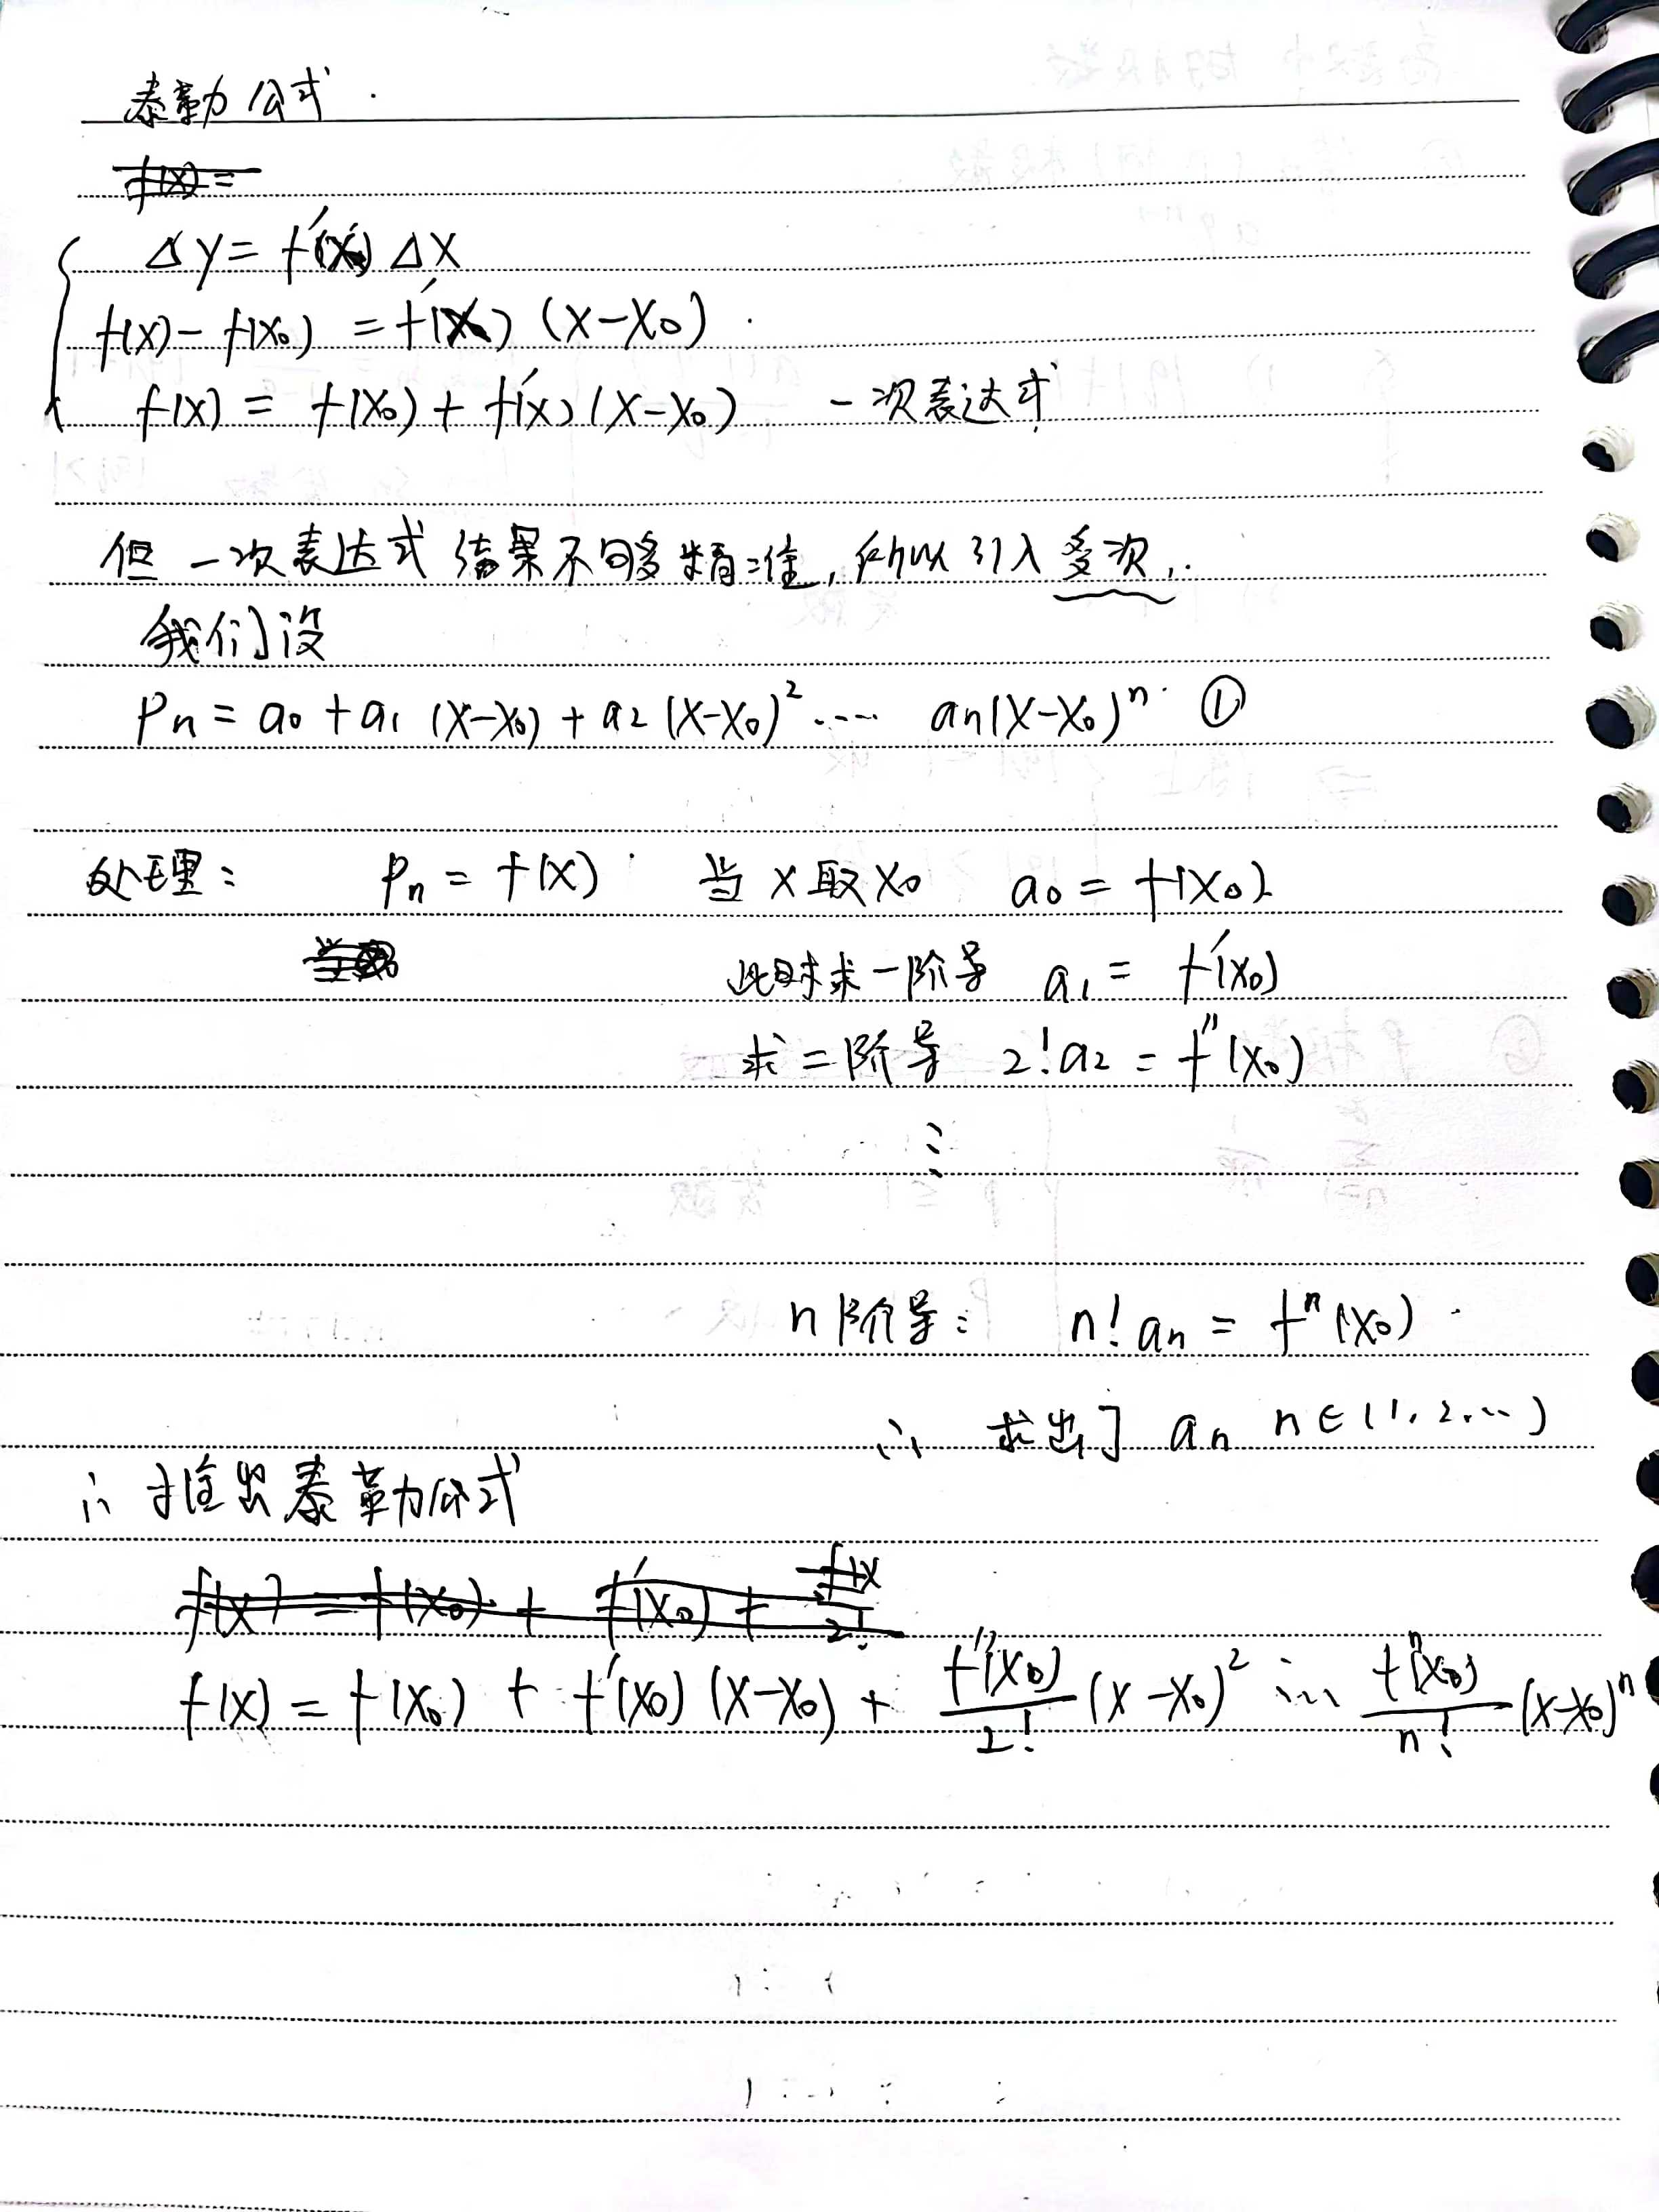 泰勒公式.
f(x)=
Δy = f'(x) Δx
f(x) - f(x₀) = f'(x) (x-x₀).
f(x) = f(x₀) + f'(x)(x-x₀) 一次表达式
但一次表达式结果不够精准,所以引入多次,.
我们设
Pn = a₀ + a₁ (x-x₀) + a₂ (x-x₀)² ···· an(x-x₀)ⁿ ①
处理: Pn = f(x) 当 x 取 x₀ a₀ = f(x₀)
此时求一阶导 a₁ = f'(x₀)
求二阶导 2!a₂ = f''(x₀)
⋮
n阶导: n! an = fⁿ(x₀)
∴ 求出了 an n∈(1,2,…)
∴ 推出泰勒公式
f(x) = f(x₀) + f'(x₀) + f(x 2!
f(x) = f(x₀) + f'(x₀) (x-x₀) + f''(x₀)/2! (x-x₀)² ... fⁿ(x₀)/n! (x-x₀)ⁿ